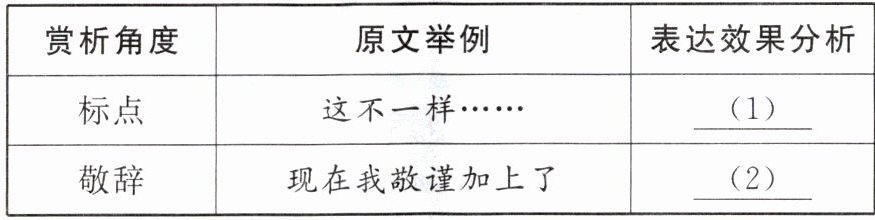 赏析角度 原文举例 表达效果分析
标点 这不一样…… （1）
敬辞 现在我敬谨加上了 （2）